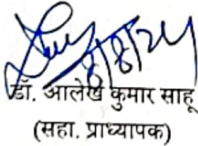 डॉ. आलेख कुमार साहू
(सहा. प्राध्यापक)